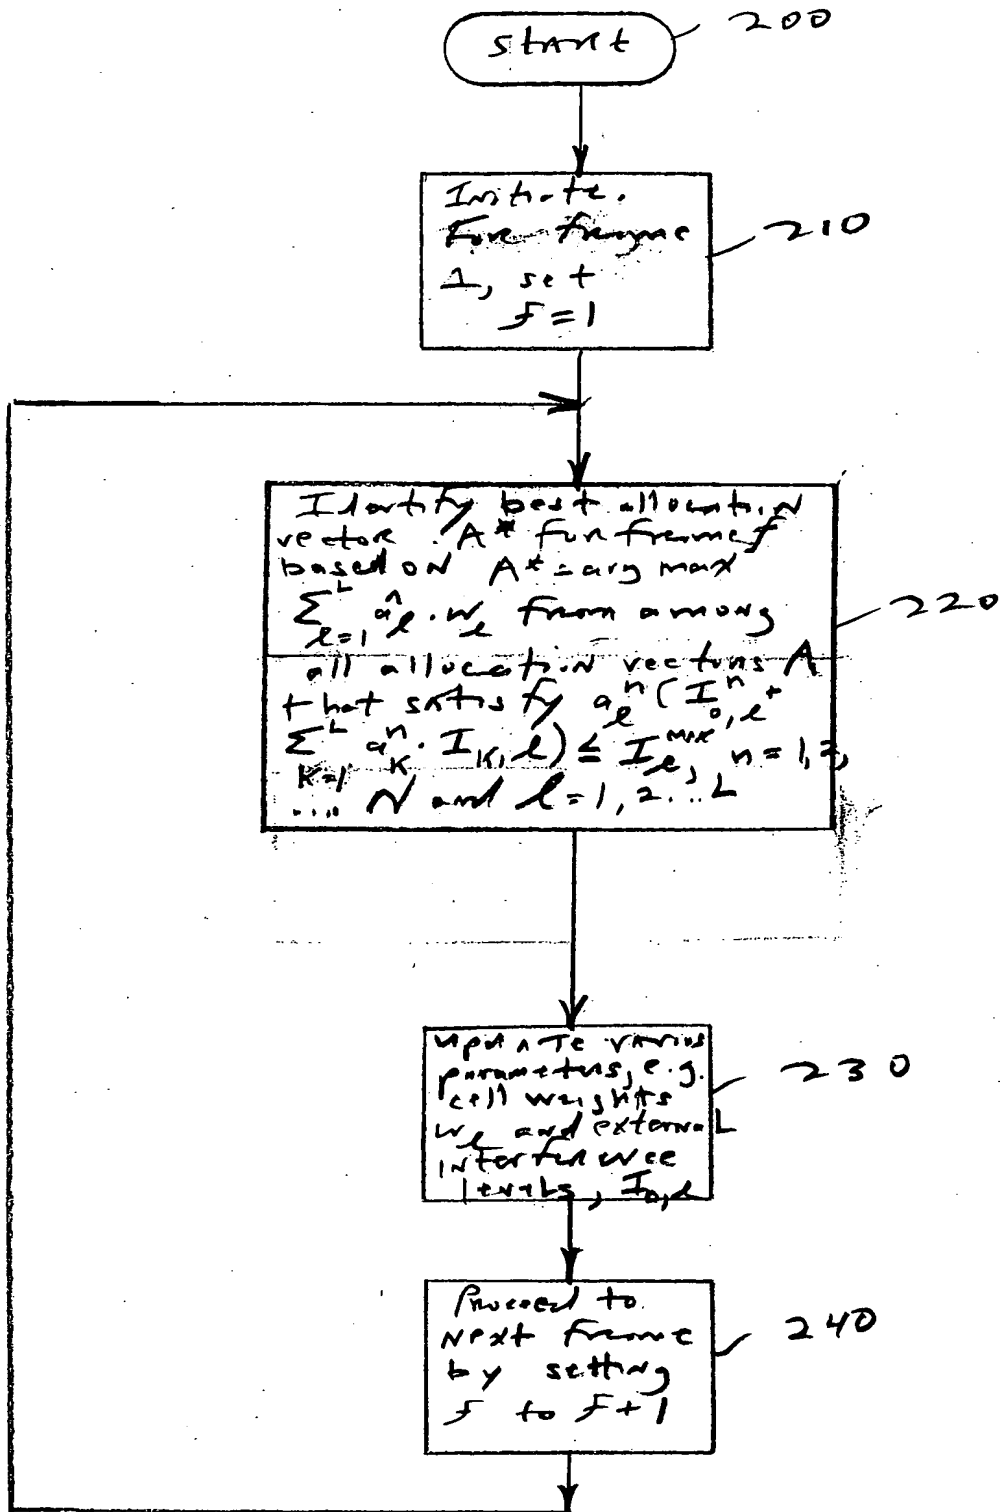 start
200
Initiate.
For frame
1, set
f = 1
210
Identify best allocation
vector A* for frame f
based on A* = arg max
∑_{l=1}^{L} a_l^n · w_l from among
all allocation vectors A
that satisfy a_l^n ( I_{0,l}^n +
∑_{k=1}^{L} a_k^n · I_{k,l} ) ≤ I_l^{max}, n = 1, 2,
.... N and l = 1, 2 ... L
220
update various
parameters, e.g.
cell weights
w_l and external
interference
levels, I_{0,l}
230
Proceed to
next frame
by setting
f to f + 1
240